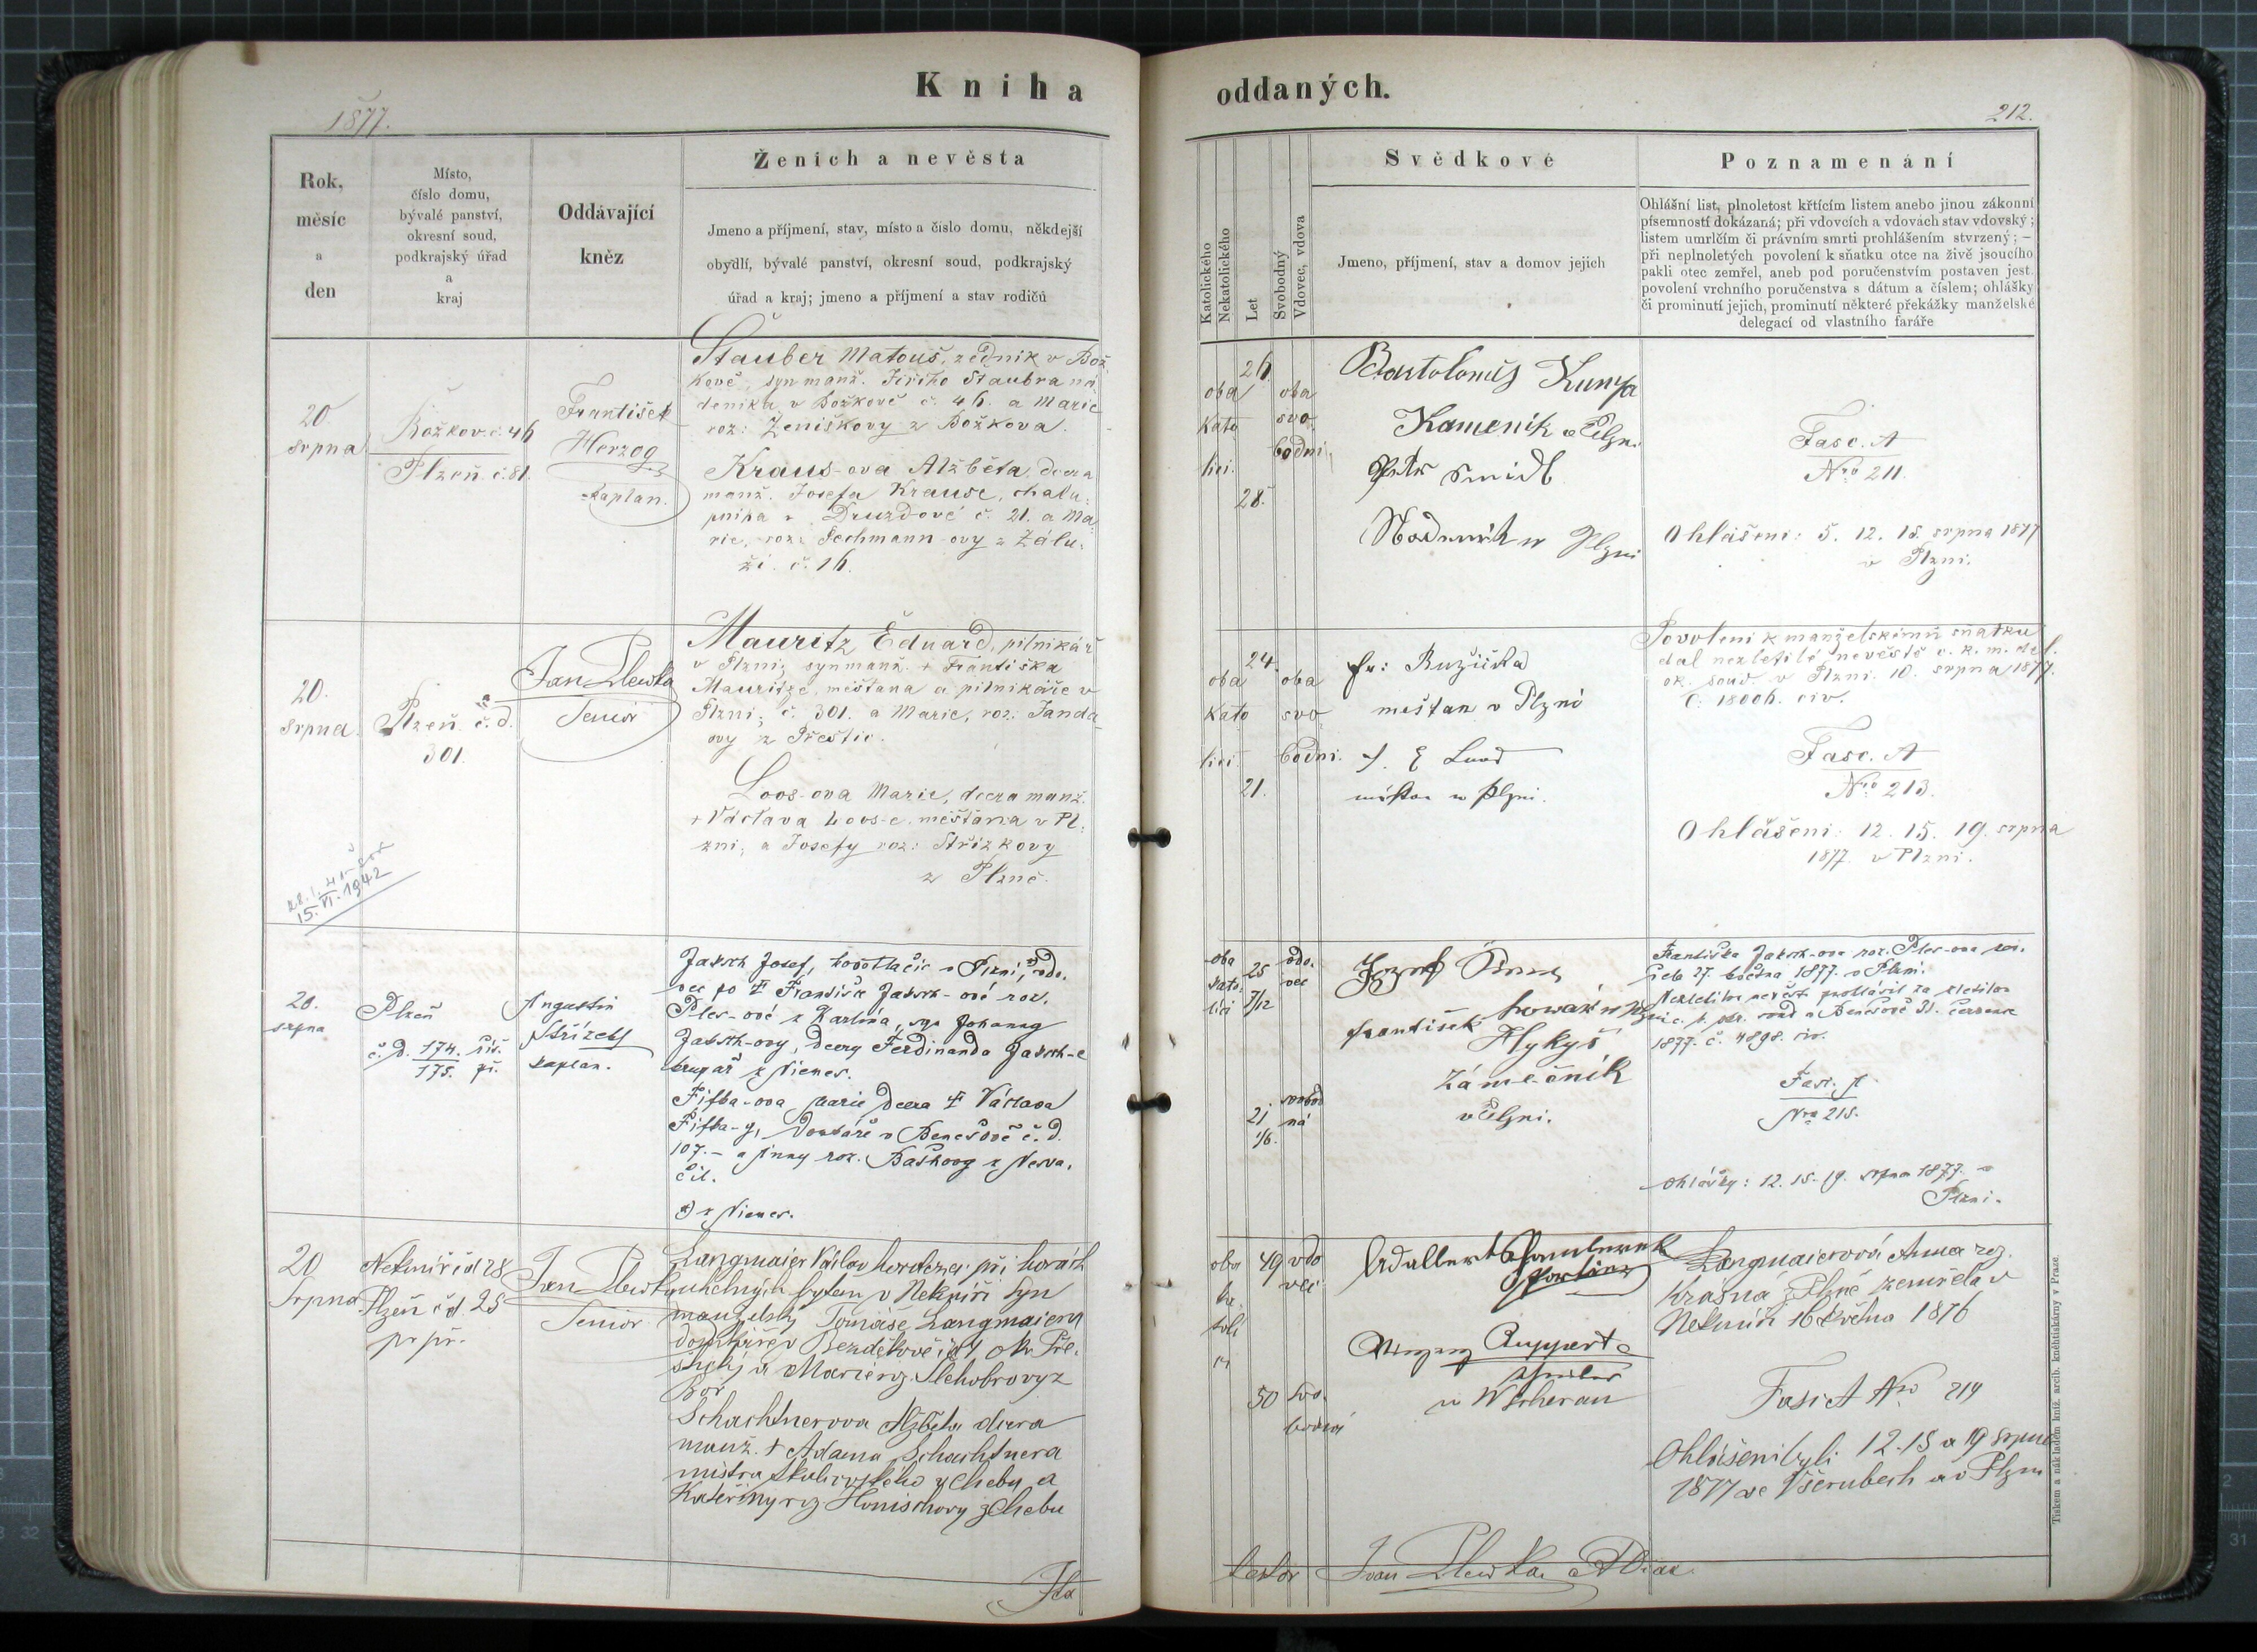 Kniha oddaných.
1877.
212.
Rok,
měsíc
a
den
Místo,
číslo domu,
bývalé panství,
okresní soud,
podkrajský úřad
a
kraj
Oddávající
kněz
Ženich a nevěsta
Jmeno a příjmení, stav, místo a číslo domu, někdejší
obydlí, bývalé panství, okresní soud, podkrajský
úřad a kraj; jmeno a příjmení a stav rodičů
Katolického
Nekatolického
Let
Svobodný
Vdovec, vdova
Svědkové
Jmeno, příjmení, stav a domov jejich
Poznamenání
Ohlášní list, plnoletost křticím listem anebo jinou zákonní
písemností dokázaná; při vdovcích a vdovách stav vdovský;
listem umrlčím či právním smrti prohlášením stvrzený; —
při neplnoletých povolení k sňatku otce na živě jsoucího
pakli otec zemřel, aneb pod poručenstvím postaven jest.
povolení vrchního poručenstva s dátum a číslem; ohlášky
či prominutí jejich, prominutí některé překážky manželské
delegací od vlastního faráře
20
srpna
Božkov č. 46
Plzeň č. 81.
František
Herzog
Kaplan.
Stauber Matouš, zedník v Bož-
kově, syn manž. Jiřího Staubra ná-
deníka v Božkově č. 46. a Marie
roz: Ženiškovy z Božkova.
Kraus-ova Alžběta, dcera
manž. Josefa Krause, chalu-
pníka v Druzdově č. 21. a Ma-
rie, roz: Pechmann-ovy z Zálu-
ží č. 16.
26
28.
oba
kato
líci.
oba
svo
bodni
Kameník v Plzni
Petr Šmidl
v Plzni
Fasc. A
Nro 211.
Ohlášeni: 5. 12. 15. srpna 1877
v Plzni.
20.
srpna.
Plzeň č. d.
301.
Jan Plewka
Senior
Mauritz Eduard, pilnikář
v Plzni, syn manž. + Františka
Mauritze, měšťana a pilnikáře v
Plzni, č. 301. a Marie, roz: Janda-
ovy z Přeštic.
Loos-ova Marie, dcera manž.
+ Václava Loos-e měšťana v Pl-
zni, a Josefy roz: Střízkovy
z Plzně.
15. VI. 1942
24.
21.
oba
kato
líci
oba
svo
bodni.
Fr: Ružička
měštan v Plzni
v Plzni.
Povoleni k manželskému sňatku
dal nezletilé nevěstě c. k. m. del.
ok. soud v Plzni 10. srpna 1877.
Č: 18006. civ.
Fasc. A
Nro 213.
Ohlášeni: 12. 15. 19. srpna
1877. v Plzni.
20.
srpna
Plzeň
č. d. 174.
175.
Augustin
Střízek
kaplan.
Jaksch Josef, kovotlačic v Plzni, vdo-
vec po + Františce Jaksch-ové roz.
Ples-ové z Karlína, syn Johanny
Jaksch-ovy, dcery Ferdinanda Jaksch-e
krupař z Niemes.
Fifka-ova Marie dcera + Václava
Fifka-y, domkáře v Benešově č. d.
107. - a Anny roz. Baškovy z Nesva-
čil.
z Niemes.
oba
kato
líci
25
7/12
vdo-
vec
21
1/6.
svobod
ná
Josef
František Hykyš
Zámečník
v Plzni.
Františka Jaksch-ova roz. Ples-ova
27. května 1877. v Plzni.
1877. č. 4898. civ.
Fasc. A
Nro 215.
ohlášky: 12. 15. 19. srpna 1877. v
Plzni.
20
Srpna
Nekmíř čd 28
Plzeň čd. 25
pr př.
Jan Plewka
Senior
Langmaier Václav při horách
uhelných bytem v Nekmíři syn
manželský Tomáše Langmaiera
domkáře v Bezděkově čd 1 okr. Pře-
štický a Marie rz. Šlehobrovy z
Bor
Schachtnerova Alžběta dcera
manž. + Adama Schachtnera
mistra z Chebu a
Kateřiny rz. Honischovy z Chebu
oba
ka
tolí
ci
49
vdo
vec
50
svo-
bodná
Adalbert
Ruppert
v Wscherau
Langmaierová Anna roz.
Krásná z Plzně zemřela v
Nekmíři 16 května 1876
Fasc A Nro 214
Ohlášeni byli 12. 15 a 19 srpna
1877 ve Všerubech a v Plzni
Jan Plewka
Tiskem a nákladem kníž. arcib. kněhtiskárny v Praze.